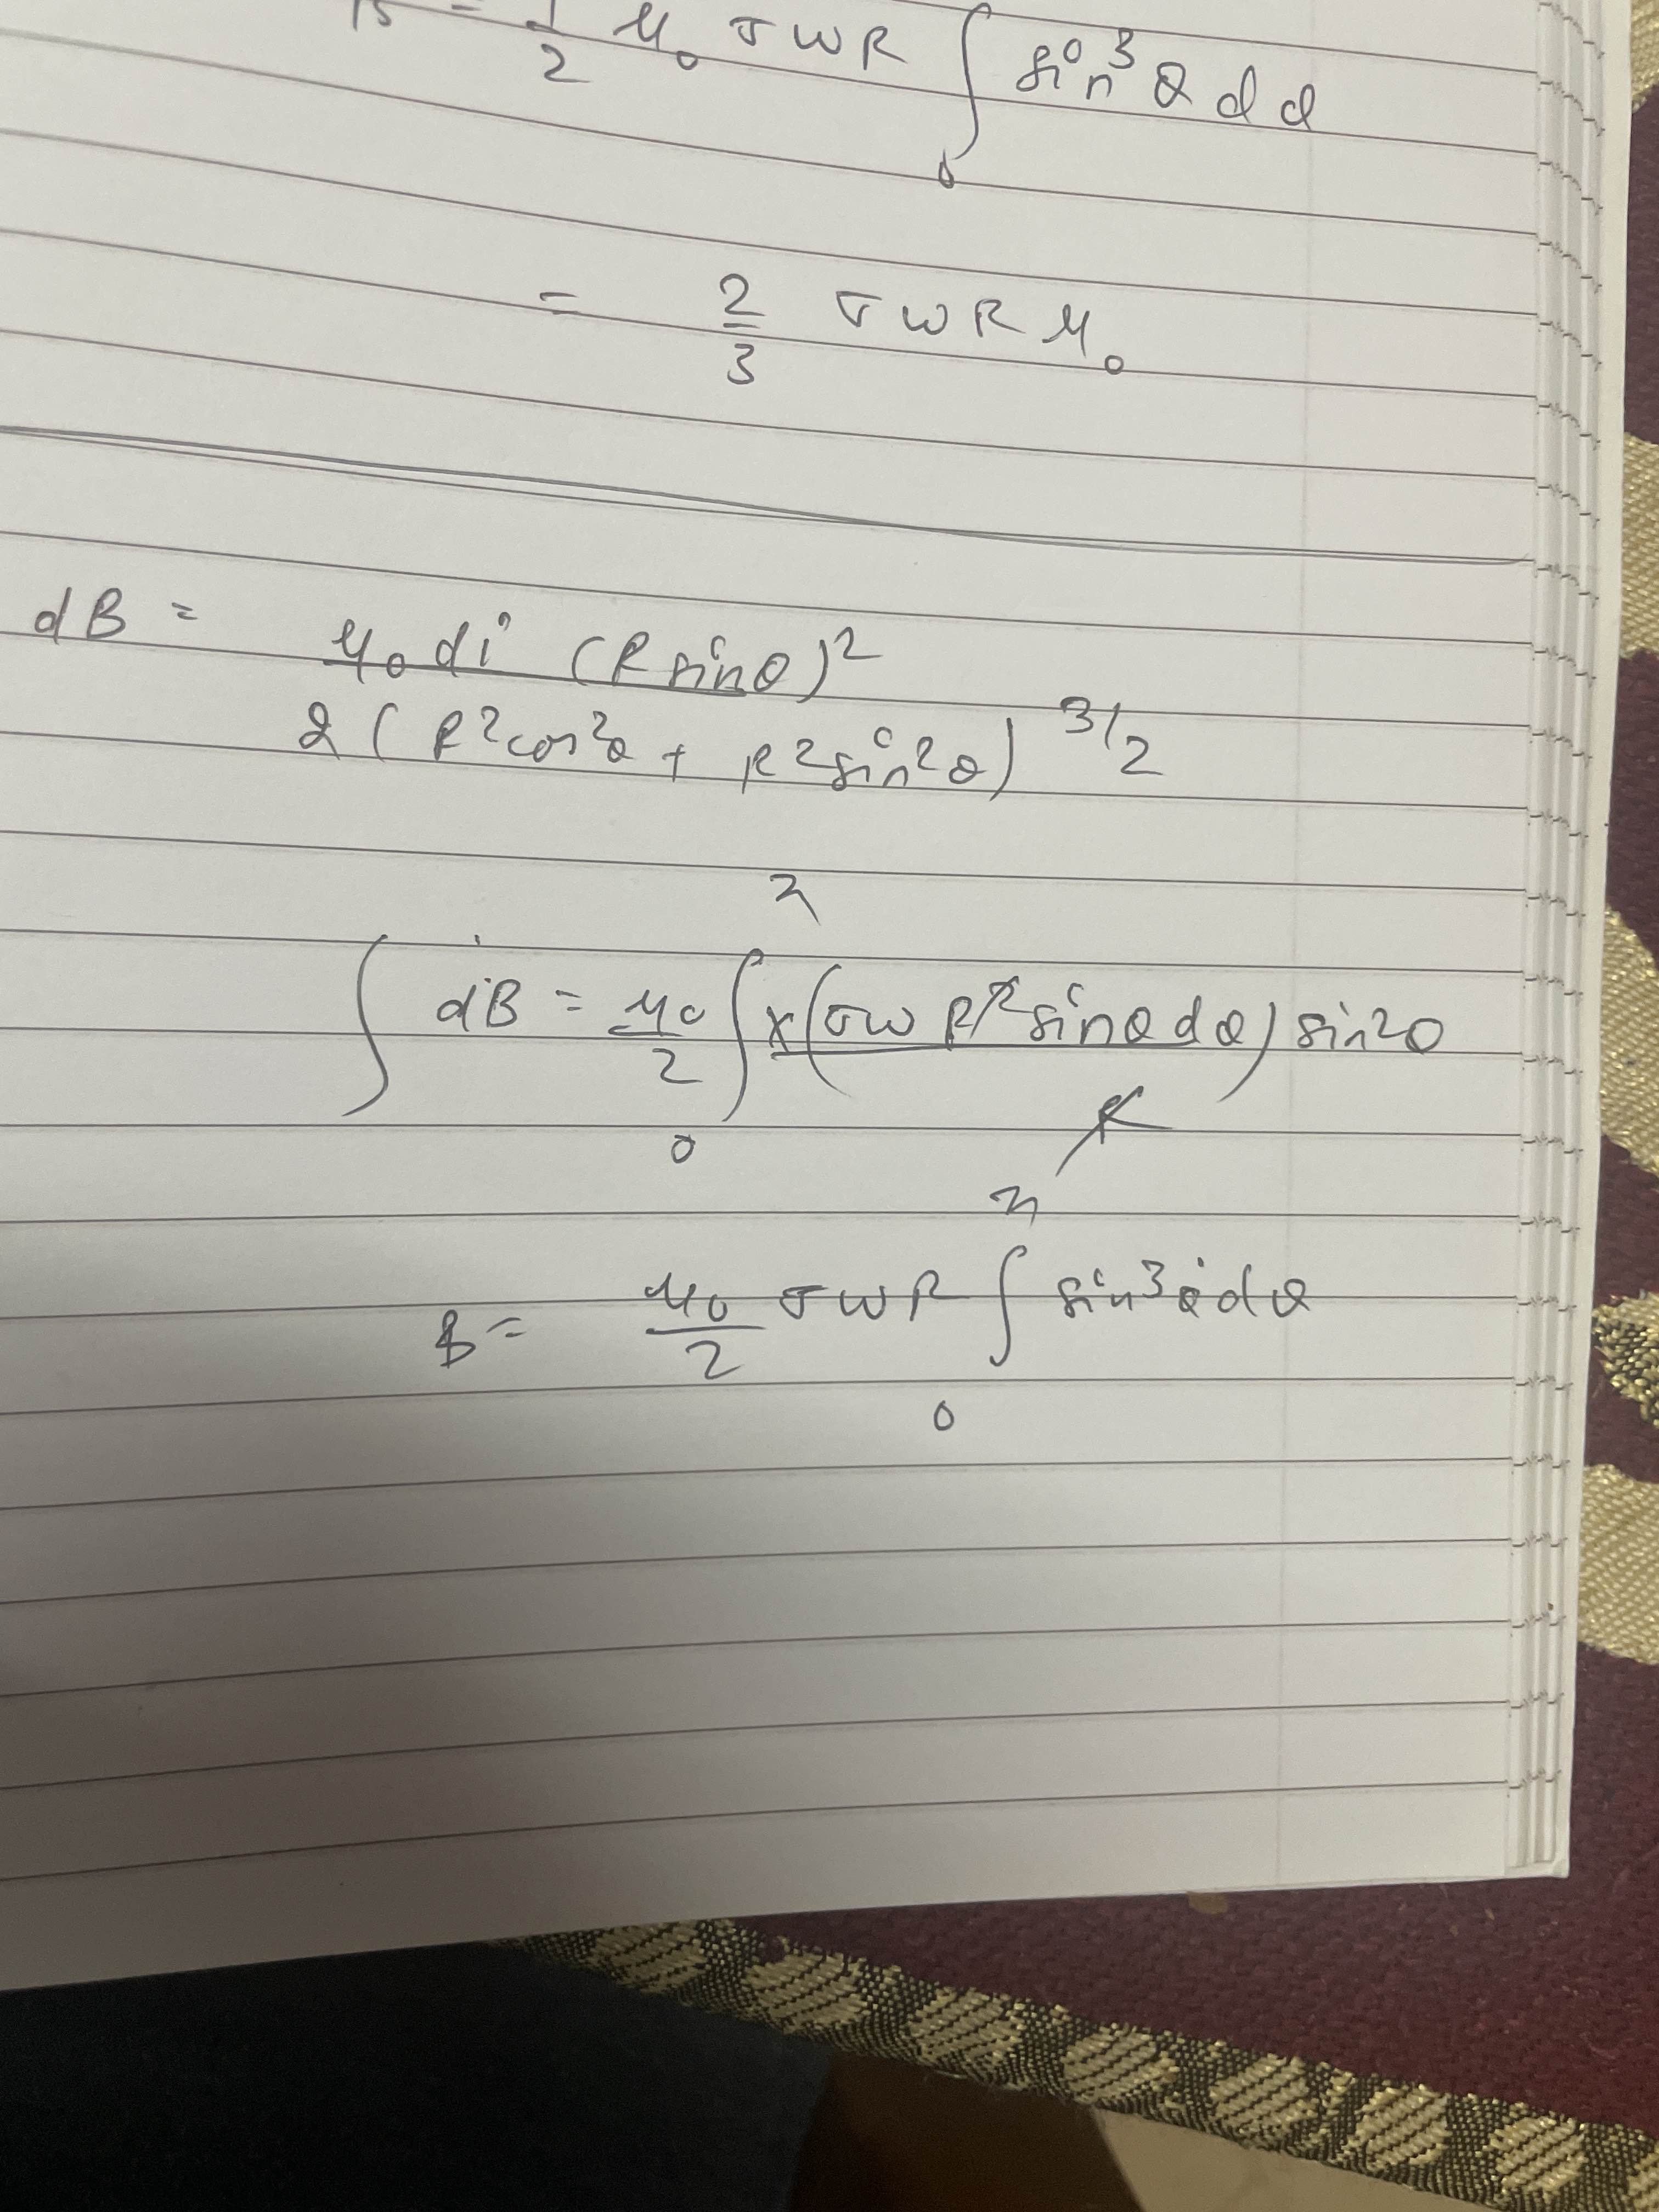 B = 1/2 μ₀ σ ω R ∫₀ sin³θ dθ
= 2/3 σ ω R μ₀
dB = μ₀ di (R sinθ)² / 2 (R² cos²θ + R² sin²θ)^3/2
∫ dB = μ₀/2 ∫₀^π × (σω R² sinθ dθ) sin²θ / R
B = μ₀/2 σ ω R ∫₀^π sin³θ dθ